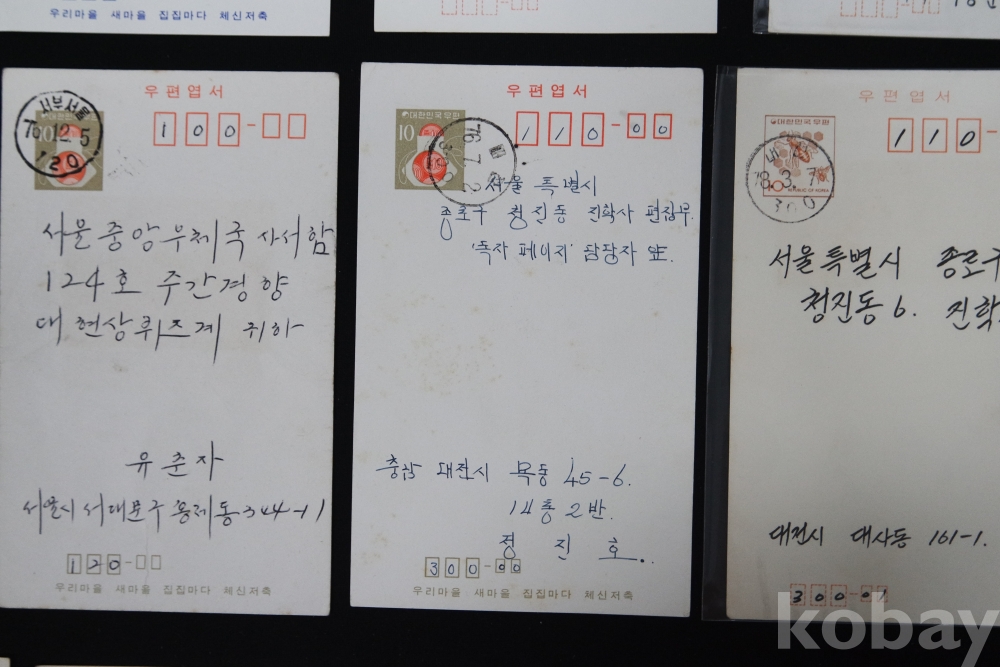 우리마을 새마을 집집마다 체신저축
우편엽서
서부서울
76.12.5
120
대한민국우편
10
100-
서울중앙우체국 사서함
124호 주간경향
대 현상퀴즈계 귀하
유춘자
서울시 서대문구 홍제동 344-11
120-
우리마을 새마을 집집마다 체신저축
우편엽서
대한민국우편
10
76.7.2
110-00
서울 특별시
종로구 청진동 진학사 편집부
'독자 페이지' 담당자 앞.
충남 대전시 목동 45-6.
14통 2반.
정진호.
300-00
우리마을 새마을 집집마다 체신저축
우편엽서
대한민국우편
10
REPUBLIC OF KOREA
78.3.7
300
110-
서울특별시 종로구
청진동 6. 진학
대전시 대사동 161-1.
300-01
kobay